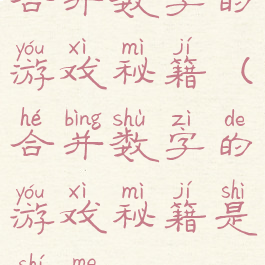 合并数字的
yóu xì mì jí
游戏秘籍（
hé bìng shù zì de
合并数字的
yóu xì mì jí shì
游戏秘籍是
shí me